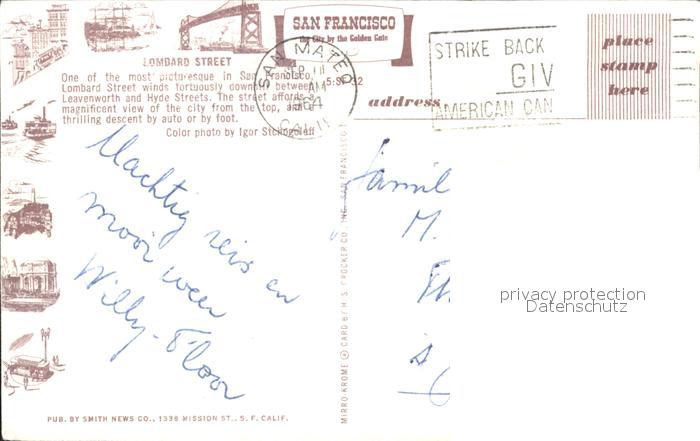 SAN FRANCISCO
the City by the Golden Gate
LOMBARD STREET
One of the most picturesque in San Francisco,
Lombard Street winds tortuously downhill between
Leavenworth and Hyde Streets. The street affords a
magnificent view of the city from the top, and a
thrilling descent by auto or by foot.
Color photo by Igor
SAN MATEO
SEP 11
AM
1964
CALIF
address
STRIKE BACK
GIV
AMERICAN CAN
place
stamp
here
Machtig reis en
mooi weer
Willy-Floor
Famil
M.
privacy protection
Datenschutz
MIRRO-KROME ® CARD BY H. S. CROCKER CO., INC., SAN FRANCISCO
PUB. BY SMITH NEWS CO., 1338 MISSION ST., S. F. CALIF.